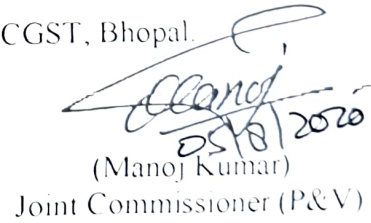 CGST, Bhopal.
Manoj
05/8/2020
(Manoj Kumar)
Joint Commissioner (P&V)